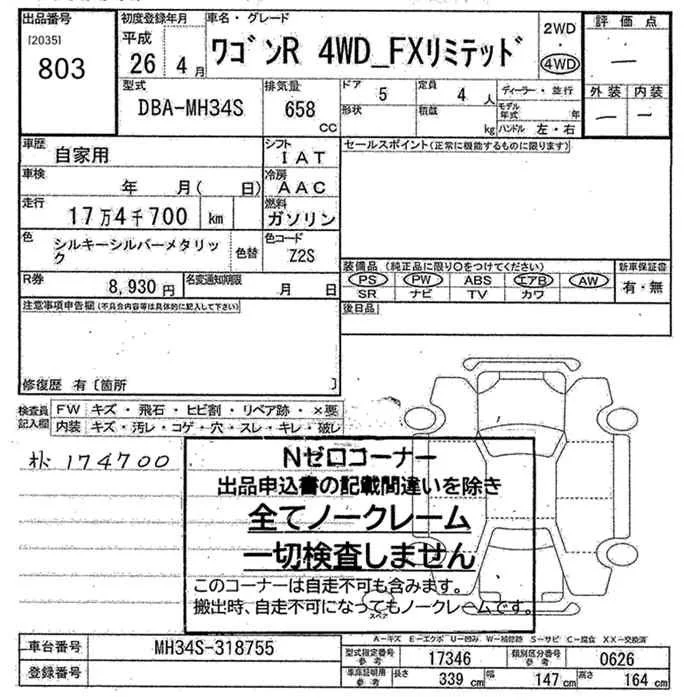 出品番号 初度登録年月 車名・グレード 2WD ・ 4WD 評価点
[2035] 803 平成 26 4月 ワゴンR 4WD_FXリミテッド —
型式 排気量 ドア 5 定員 4人 ディーラー・並行 外装 内装
DBA-MH34S 658 CC 形状 積載 kg モデル年式 年 ハンドル 左・右 — —
車歴 自家用 シフト IAT セールスポイント(正常に機能するものに限ります)
車検 年 月( 日) 冷房 AAC
走行 17万4千700 km 燃料 ガソリン
色 シルキーシルバーメタリック 色替 色コード Z2S
装備品(純正品に限り○をつけてください) 新車保証書
R券 8,930円 名変通知期限 月 日
PS PW ABS エアB AW 有・無
SR ナビ TV カワ
注意事項申告欄(不具合内容等は具体的に記入して下さい) 後日品
修復歴 有〔箇所 〕
検査員記入欄 FW キズ・飛石・ヒビ割・リペア跡・×要
内装 キズ・汚レ・コゲ・穴・スレ・キレ・破レ
174700
Nゼロコーナー
出品申込書の記載間違いを除き
全てノークレーム
一切検査しません
このコーナーは自走不可も含みます。
搬出時、自走不可になってもノークレームです。
スペア
A-キズ E-エクボ U-凹み W-補修跡 S-サビ C-腐食 XX-交換済
車台番号 MH34S-318755 型式指定番号 参考 17346 類別区分番号 参考 0626
登録番号 車庫証明用 参考 長さ 339 cm 幅 147 cm 高さ 164 cm